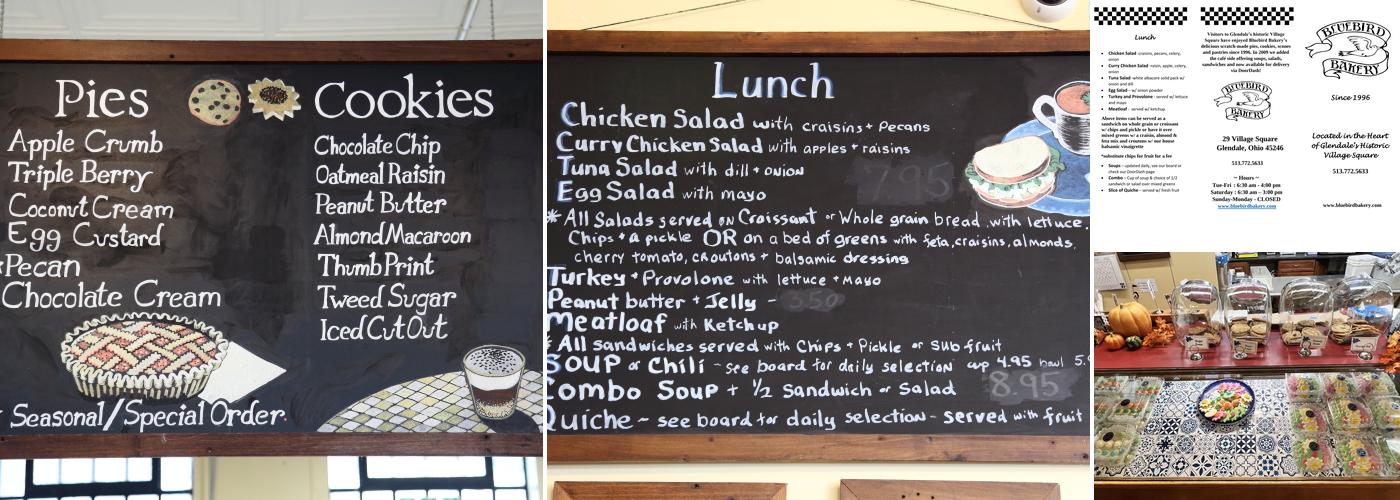 Pies
Cookies
Apple Crumb
Triple Berry
Coconut Cream
Egg Custard
*Pecan
Chocolate Cream
Chocolate Chip
Oatmeal Raisin
Peanut Butter
Almond Macaroon
Thumb Print
Tweed Sugar
Iced Cut Out
* Seasonal/Special Order.
Lunch
Chicken Salad with craisins + Pecans
Curry Chicken Salad with apples + raisins
Tuna Salad with dill + onion
7.95
Egg Salad with mayo
*All Salads served on Croissant or Whole grain bread with lettuce,
Chips + a pickle OR on a bed of greens with feta, craisins, almonds,
cherry tomato, croutons + balsamic dressing
Turkey + Provolone with lettuce + Mayo
Peanut butter + Jelly - 3.50
Meatloaf with Ketchup
* All sandwiches served with Chips + Pickle or Sub fruit
Soup or Chili - see board for daily selection cup 4.95 bowl 5.
Combo Soup + 1/2 Sandwich or Salad 8.95
Quiche ~ see board for daily selection - served with fruit
Lunch
• Chicken Salad -craisins, pecans, celery,
onion
• Curry Chicken Salad -raisin, apple, celery,
onion
• Tuna Salad -white albacore solid pack w/
onion and dill
• Egg Salad - w/ onion powder
• Turkey and Provolone - served w/ lettuce
and mayo
• Meatloaf - served w/ ketchup
Above items can be served as a
sandwich on whole grain or croissant
w/ chips and pickle or have it over
mixed greens w/ a craisin, almond &
feta mix and croutons w/ our house
balsamic vinaigrette
*substitute chips for fruit for a fee
• Soups - updated daily, see our board or
check our DoorDash page
• Combo - Cup of soup & choice of 1/2
sandwich or salad over mixed greens
• Slice of Quiche - served w/ fresh fruit
Visitors to Glendale's historic Village
Square have enjoyed Bluebird Bakery's
delicious scratch-made pies, cookies, scones
and pastries since 1996. In 2009 we added
the café side offering soups, salads,
sandwiches and now available for delivery
via DoorDash!
BLUEBIRD
BAKERY
29 Village Square
Glendale, Ohio 45246
513.772.5633
~ Hours ~
Tue-Fri : 6:30 am - 4:00 pm
Saturday : 6:30 am – 3:00 pm
Sunday-Monday - CLOSED
www.bluebirdbakery.com
BLUEBIRD
BAKERY
Since 1996
Located in the Heart
of Glendale's Historic
Village Square
513.772.5633
www.bluebirdbakery.com